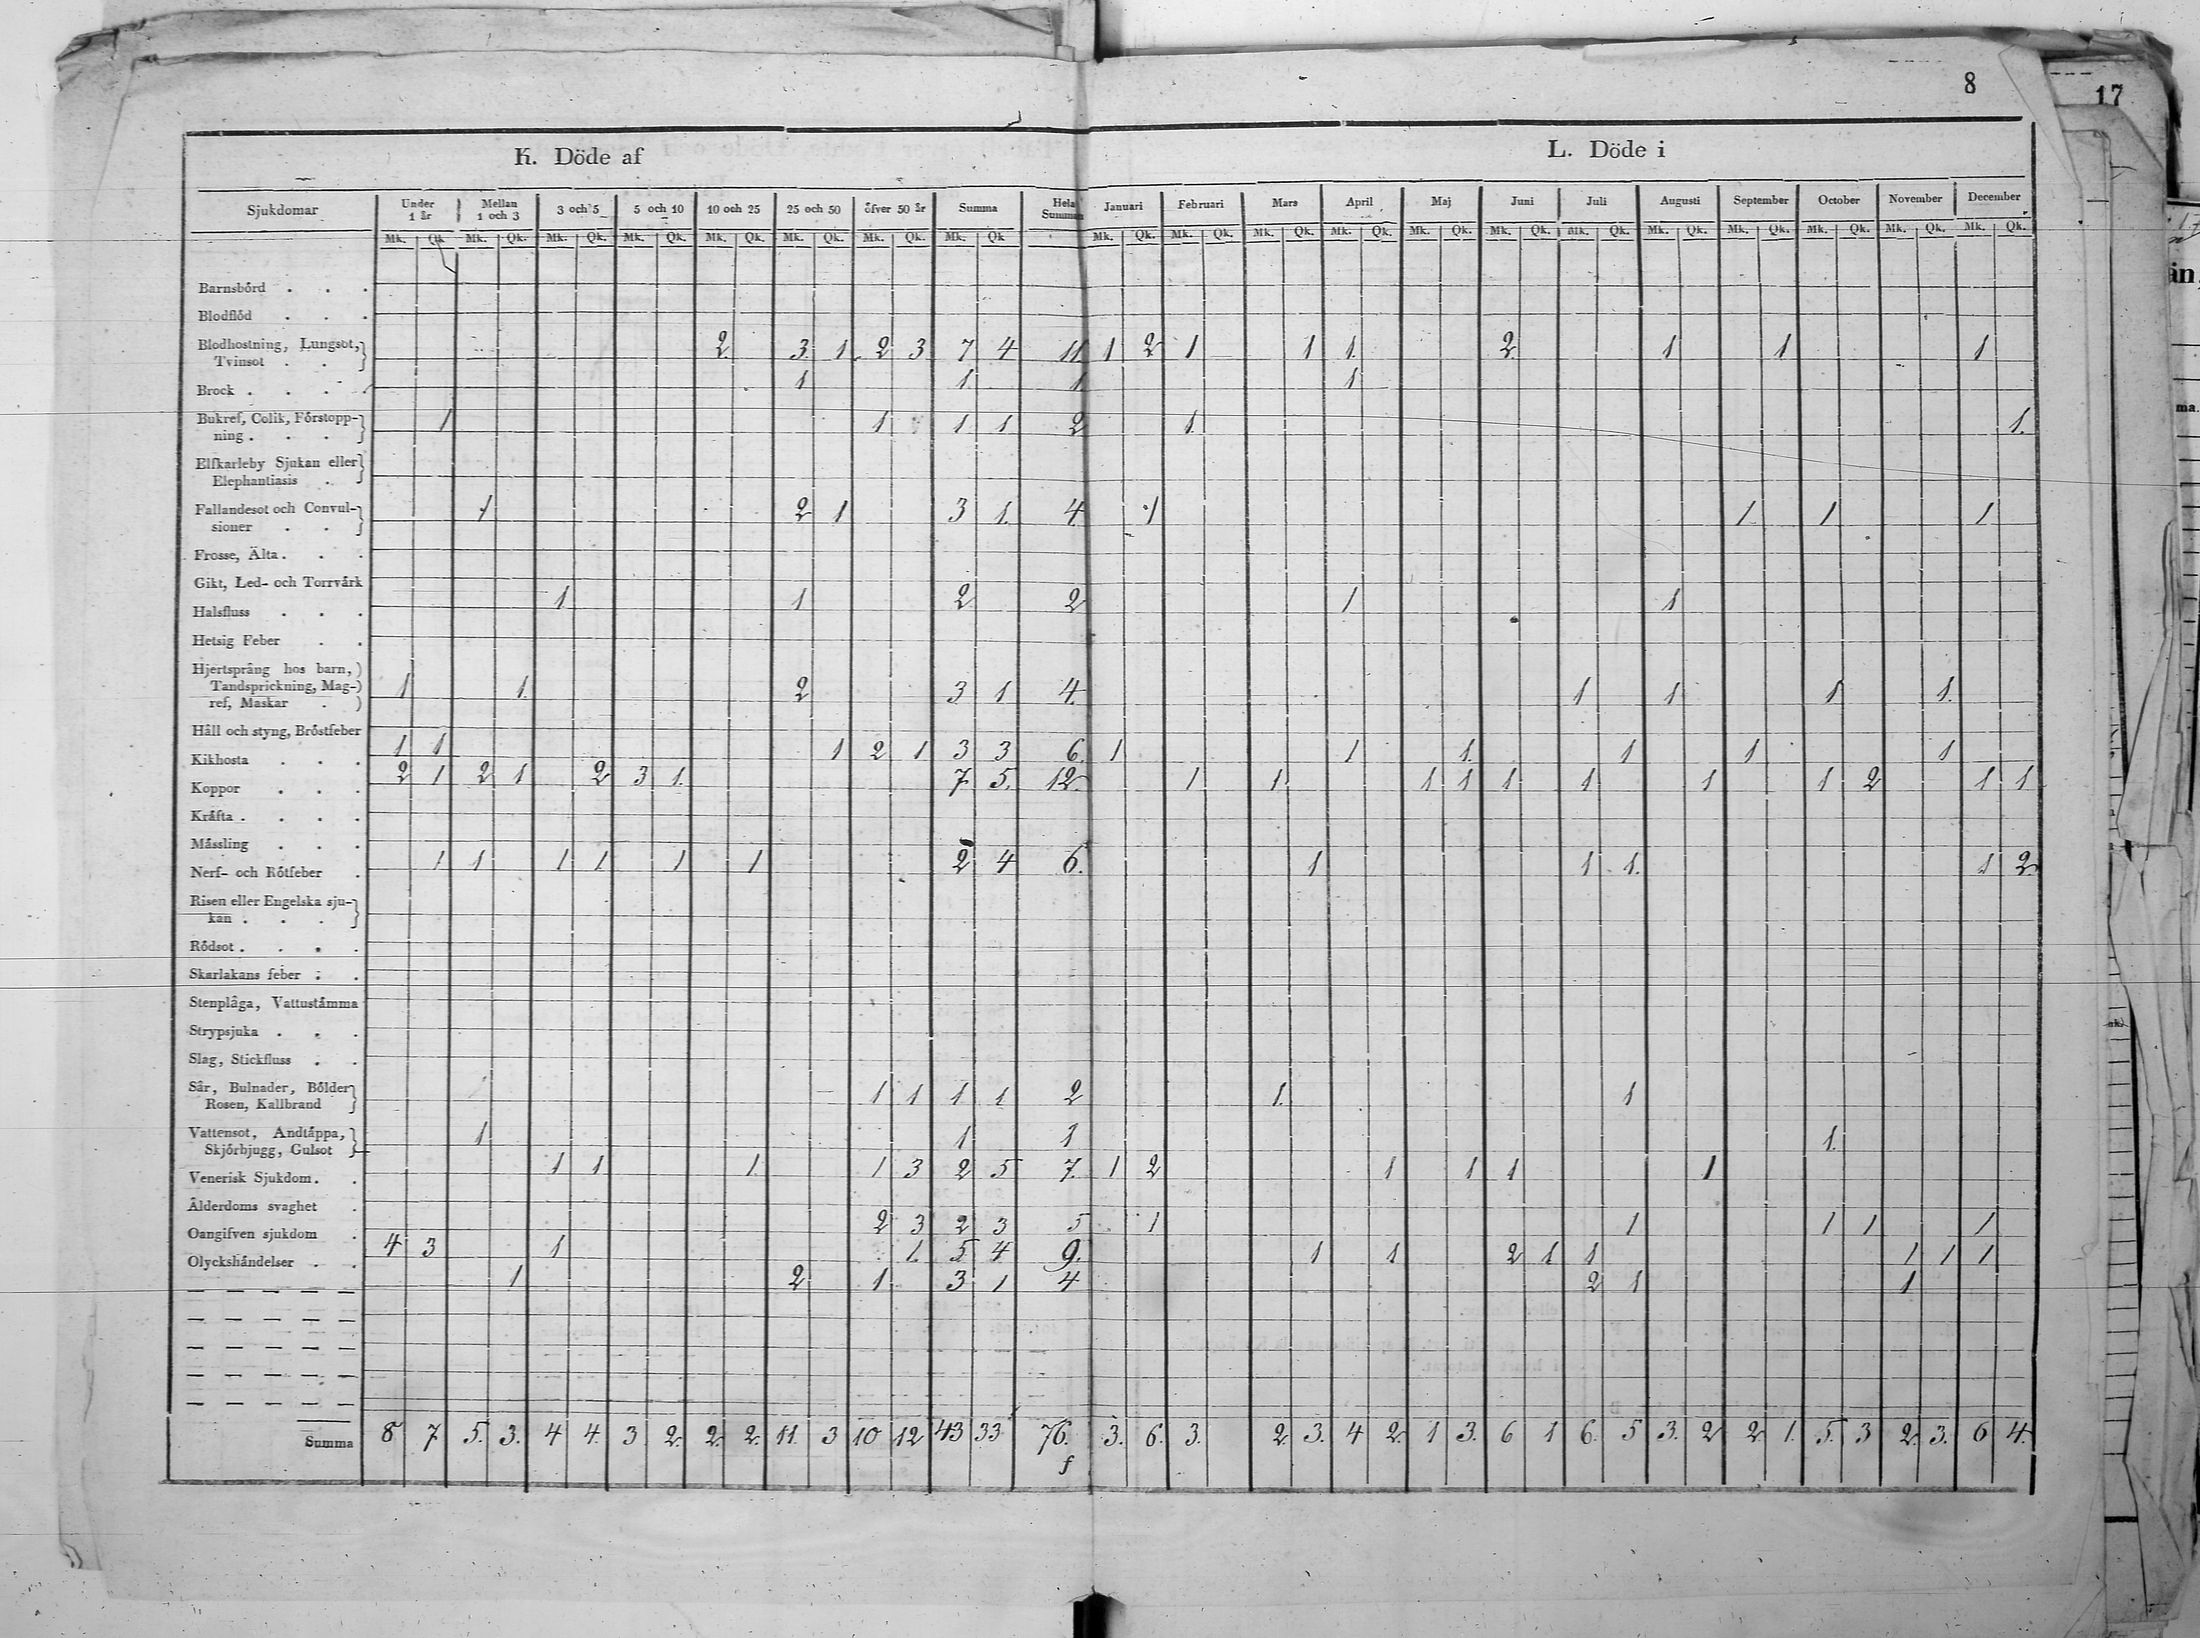 8
17
K. Döde af
L. Döde i
Sjukdomar | Under 1 år | Mellan 1 och 3 | 3 och 5 | 5 och 10 | 10 och 25 | 25 och 50 | öfver 50 år | Summa | Hela Summan | Januari | Februari | Mars | April | Maj | Juni | Juli | Augusti | September | October | November | December
Mk. Qk. Mk. Qk. Mk. Qk. Mk. Qk. Mk. Qk. Mk. Qk. Mk. Qk. Mk. Qk. Mk. Qk. Mk. Qk. Mk. Qk. Mk. Qk. Mk. Qk. Mk. Qk. Mk. Qk. Mk. Qk. Mk. Qk. Mk. Qk. Mk. Qk. Mk. Qk.
Barnsbörd . . .
Blodflöd . . .
Blodhostning, Lungsot,
Tvinsot . . 2. 3. 1. 2 3 7 4 11 1 2 1 1 1. 2. 1 1 1
Brock . . . . 1 1. 1 1
Bukref, Colik, Förstopp-
ning . . . 1 1 1. 1 2 1. 1.
Elfkarleby Sjukan eller
Elephantiasis .
Fallandesot och Convul-
sioner . . 1 2 1 3 1. 4 1 1. 1 1
Frosse, Älta . . .
Gikt, Led- och Torrvärk
Halsfluss . . . 1 1 2 2 1 1
Hetsig Feber . .
Hjertsprång hos barn,
Tandsprickning, Mag-
ref, Maskar . 1 1. 2 3 1 4. 1 1 1 1.
Håll och styng, Bröstfeber
Kikhosta . . . 1 1 1 2 1 3 3 6. 1 1 1. 1 1 1
Koppor . . . 2 1 2 1 2 3 1. 7. 5. 12. 1 1. 1 1 1 1 1 1 2 1 1
Kräfta . . . .
Mässling . . .
Nerf- och Rötfeber . 1 1 1 1 1 1 2 4 6. 1 1 1. 1 2
Risen eller Engelska sju-
kan . . .
Rödsot . . . .
Skarlakans feber . .
Stenplåga, Vattustämma
Strypsjuka . . .
Slag, Stickfluss . .
Sår, Bulnader, Bölder
Rosen, Kallbrand 1 1 1 1 2 1. 1
Vattensot, Andtäppa,
Skjörbjugg, Gulsot 1 1 1 1.
Venerisk Sjukdom. . 1 1 1. 1 3 2 5 7. 1 2 1 1 1 1
Ålderdoms svaghet .
2 3 2 3 5 1 1 1 1 1
Oangifven sjukdom .
4 3 1 1. 5 4 9. 1 1 2 1 1 1 1 1
Olyckshändelser . .
1 2 1 3 1 4 2 1 1
Summa 8 7 5. 3. 4 4. 3 2. 2. 2. 11. 3 10 12 43 33 76. 3. 6. 3. 2. 3. 4 2. 1 3. 6 1 6. 5 3. 2 2 1. 5. 3 2. 3. 6 4.